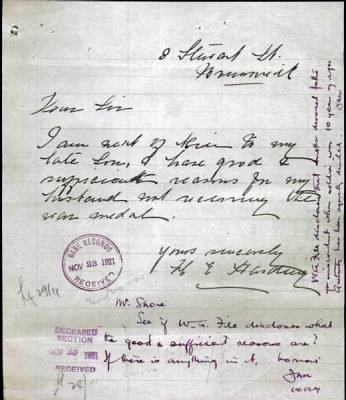 8 Stuart St.
Brunswick
Dear Sir
I am next of kin to my
late Son, & have good &
sufficient reasons for my
husband not receiving the
war medal.
Yours sincerely
H E
BASE RECORDS
NOV 23 1921
RECEIVED
Mr. Shore
See if W.G. File discloses what
the good & sufficient reasons are?
If there is anything in it.
DECEASED
SECTION
NOV 23 1921
RECEIVED
W.G. File discloses that
when soldier was 10 years of age
Gratuity has been equally divided